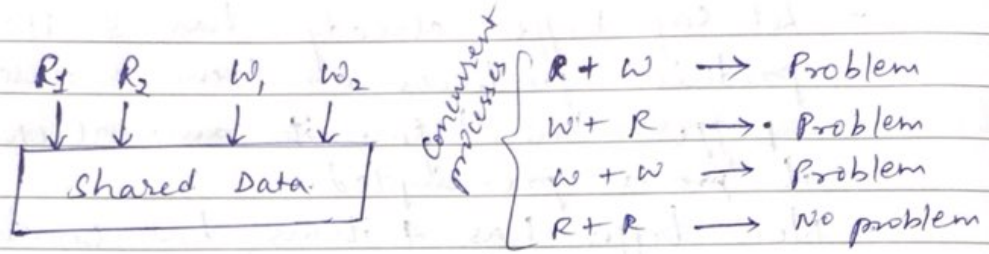 R1 R2 W1 W2
Shared Data.
Concurrent
processes
R + W → Problem
W + R → Problem
W + W → Problem
R + R → No problem